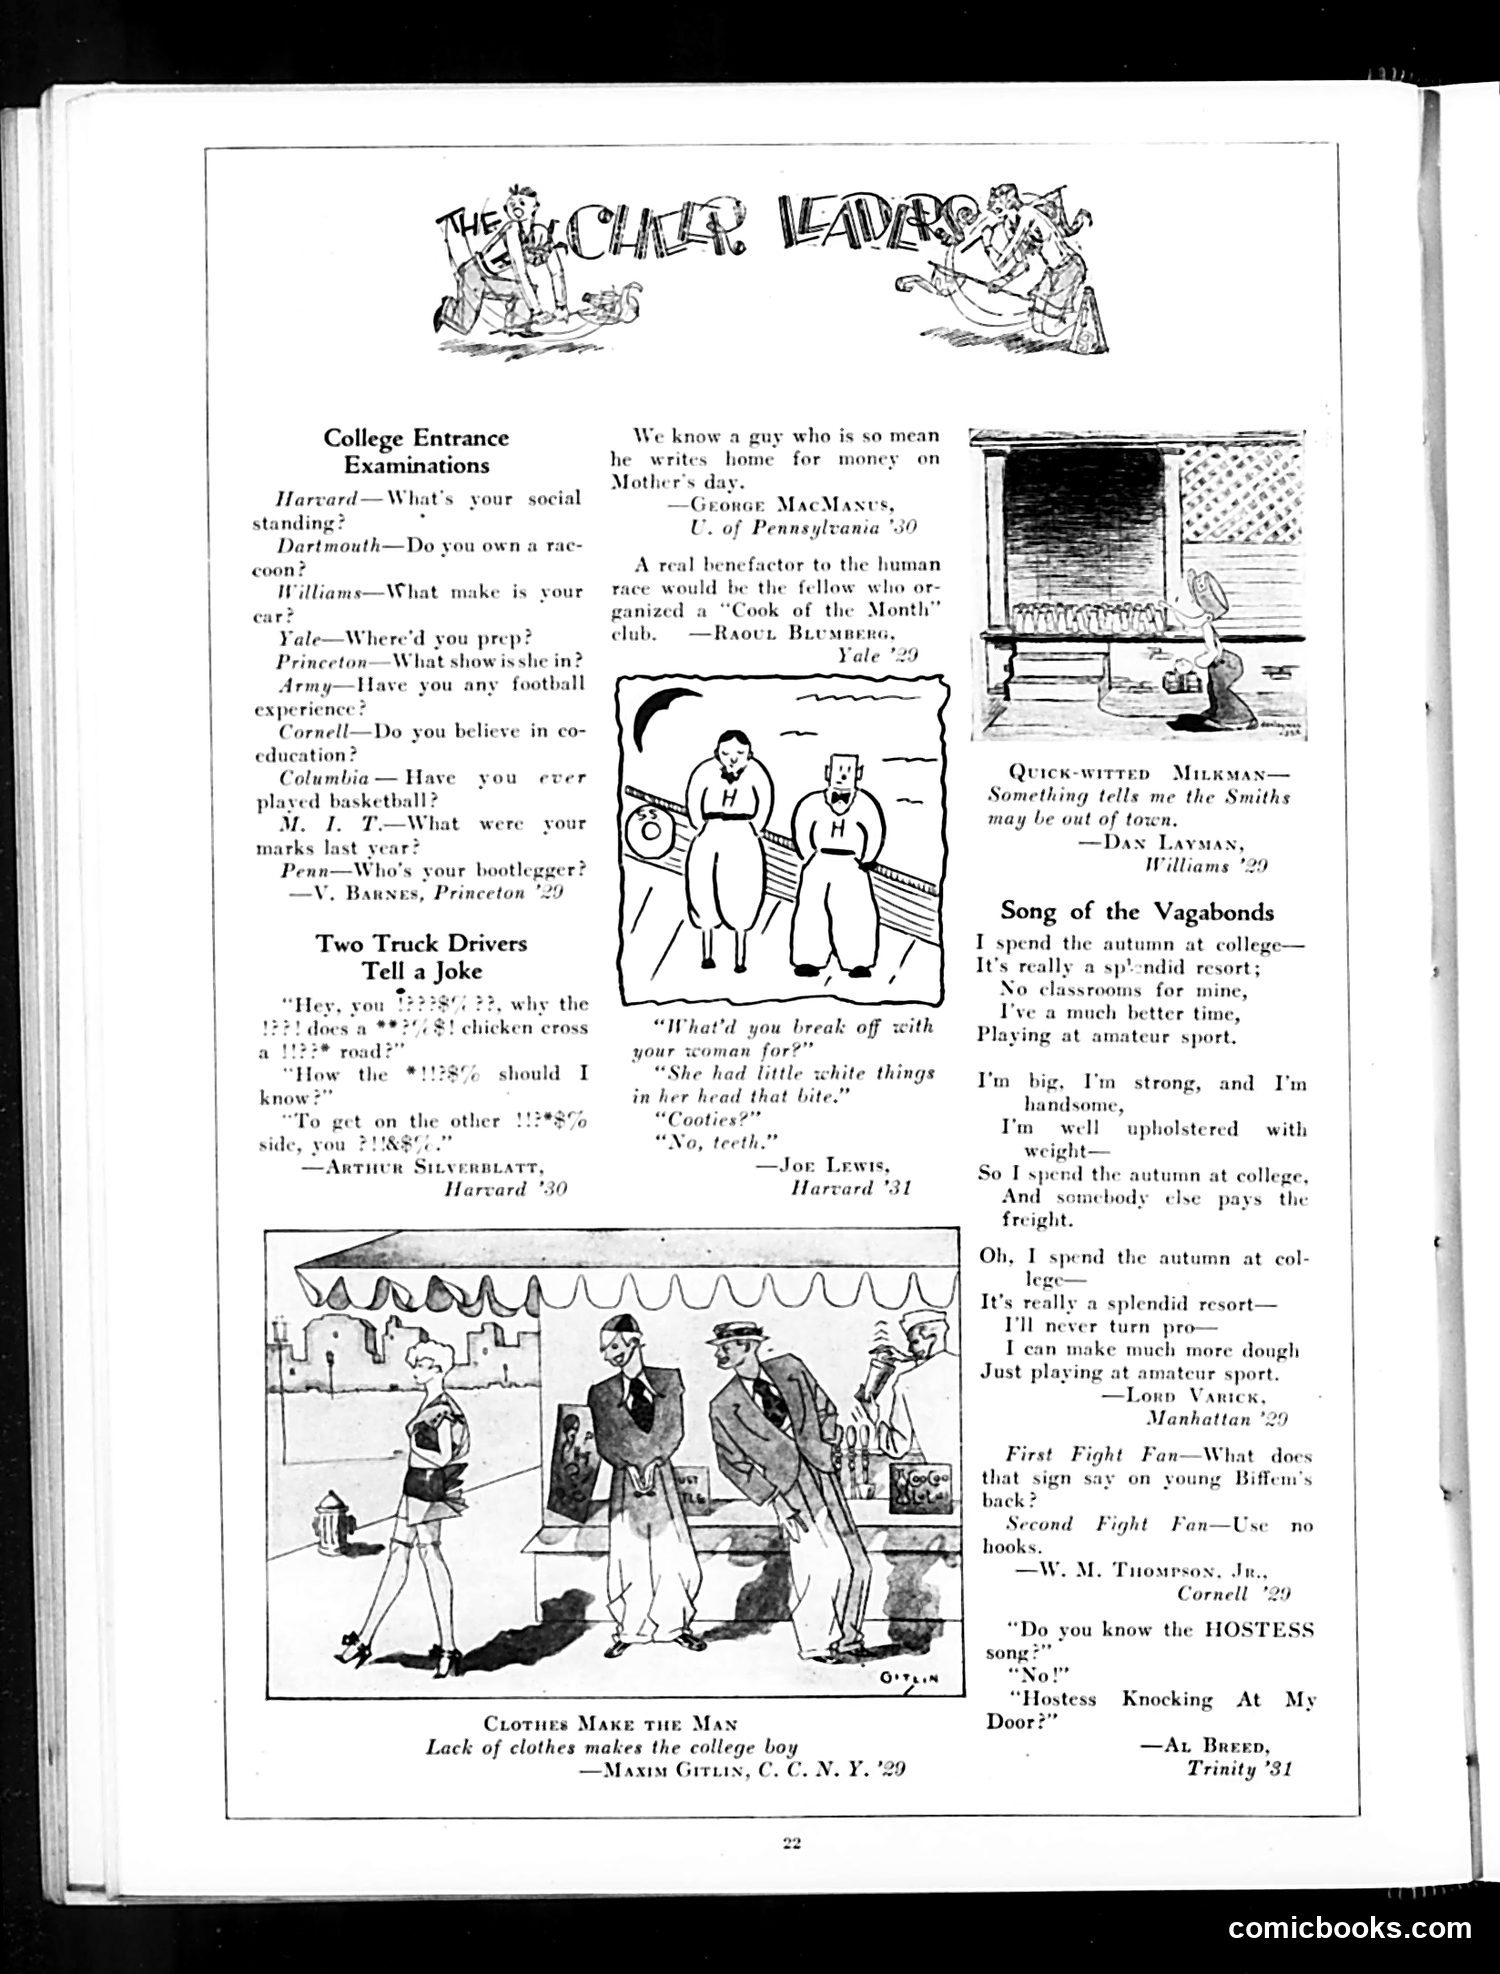 THE CHEER LEADERS
College Entrance
Examinations
Harvard—What's your social
standing?
Dartmouth—Do you own a rac-
coon?
Williams—What make is your
car?
Yale—Where'd you prep?
Princeton—What show is she in?
Army—Have you any football
experience?
Cornell—Do you believe in co-
education?
Columbia — Have you ever
played basketball?
M. I. T.—What were your
marks last year?
Penn—Who's your bootlegger?
—V. BARNES, Princeton '29
Two Truck Drivers
Tell a Joke
"Hey, you !???$% ??, why the
!??! does a **?%$! chicken cross
a !!??* road?"
"How the *!!?$% should I
know?"
"To get on the other !!?*$%
side, you ?!!&$%."
—ARTHUR SILVERBLATT,
Harvard '30
We know a guy who is so mean
he writes home for money on
Mother's day.
—GEORGE MACMANUS,
U. of Pennsylvania '30
A real benefactor to the human
race would be the fellow who or-
ganized a "Cook of the Month"
club. —RAOUL BLUMBERG,
Yale '29
H
H
SS
"What'd you break off with
your woman for?"
"She had little white things
in her head that bite."
"Cooties?"
"No, teeth."
—JOE LEWIS,
Harvard '31
GITLIN
CLOTHES MAKE THE MAN
Lack of clothes makes the college boy
—MAXIM GITLIN, C. C. N. Y. '29
QUICK-WITTED MILKMAN—
Something tells me the Smiths
may be out of town.
—DAN LAYMAN,
Williams '29
Song of the Vagabonds
I spend the autumn at college—
It's really a splendid resort;
No classrooms for mine,
I've a much better time,
Playing at amateur sport.
I'm big, I'm strong, and I'm
handsome,
I'm well upholstered with
weight—
So I spend the autumn at college,
And somebody else pays the
freight.
Oh, I spend the autumn at col-
lege—
It's really a splendid resort—
I'll never turn pro—
I can make much more dough
Just playing at amateur sport.
—LORD VARICK,
Manhattan '29
First Fight Fan—What does
that sign say on young Biffem's
back?
Second Fight Fan—Use no
hooks.
—W. M. THOMPSON, JR.,
Cornell '29
"Do you know the HOSTESS
song?"
"No!"
"Hostess Knocking At My
Door?"
—AL BREED,
Trinity '31
22
comicbooks.com